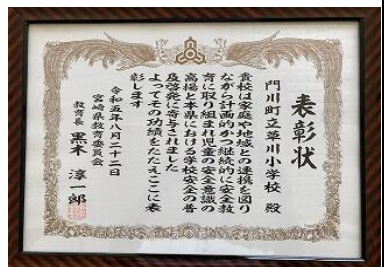 表彰状
門川町立草川小学校 殿
貴校は家庭や地域との連携を図り
ながら計画的かつ継続的に安全教
育に取り組まれ児童の安全意識の
高揚と本県における学校安全の普
及啓発に寄与されました
よってその功績をたたえここに表
彰します
令和五年八月二十二日
宮崎県教育委員会
教育長 黒木 淳一郎